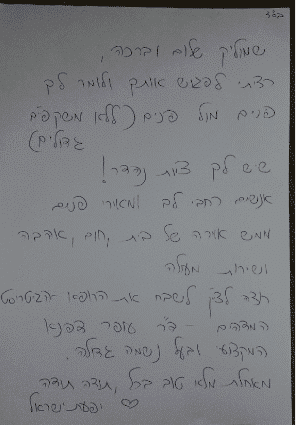 בס"ד
שמוליק שלום וברכה,
רציתי לפגוש אותך ולומר לך
פנים מול פנים (ללא משקפיים
גדולים)
שיש לך צוות נהדר!
אנשים רחבי לב ומאירי פנים
ממש אוירה של בית, חום, אהבה
ושירות מעולה
רוצה לציין לשבח את הרופא
המדהים - ד"ר
המקצועי ובעל נשמה גדולה.
מאחלת מלא טוב בכל, תודה תודה
יפעת ישראל